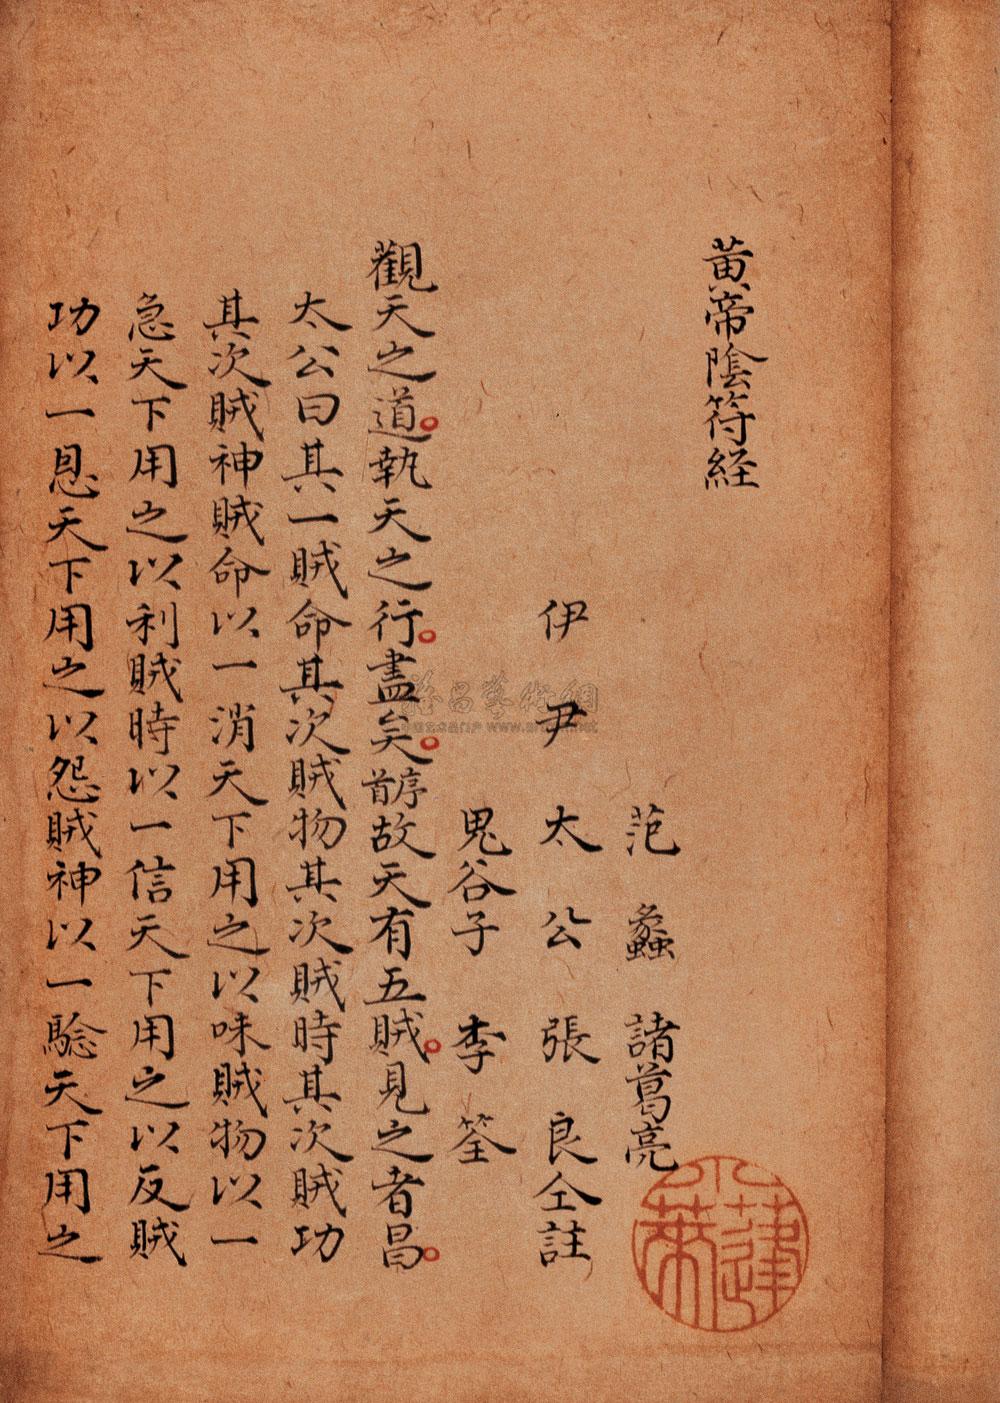 黃帝陰符経
范蠡 諸葛亮
伊尹 太公 張良仝註
鬼谷子 李筌
觀天之道。執天之行。盡矣。序首故天有五賊。見之者昌。
太公曰其一賊命其次賊物其次賊時其次賊功
其次賊神賊命以一消天下用之以味賊物以一
急天下用之以利賊時以一信天下用之以反賊
功以一恩天下用之以怨賊神以一騐天下用之
小蓬萊